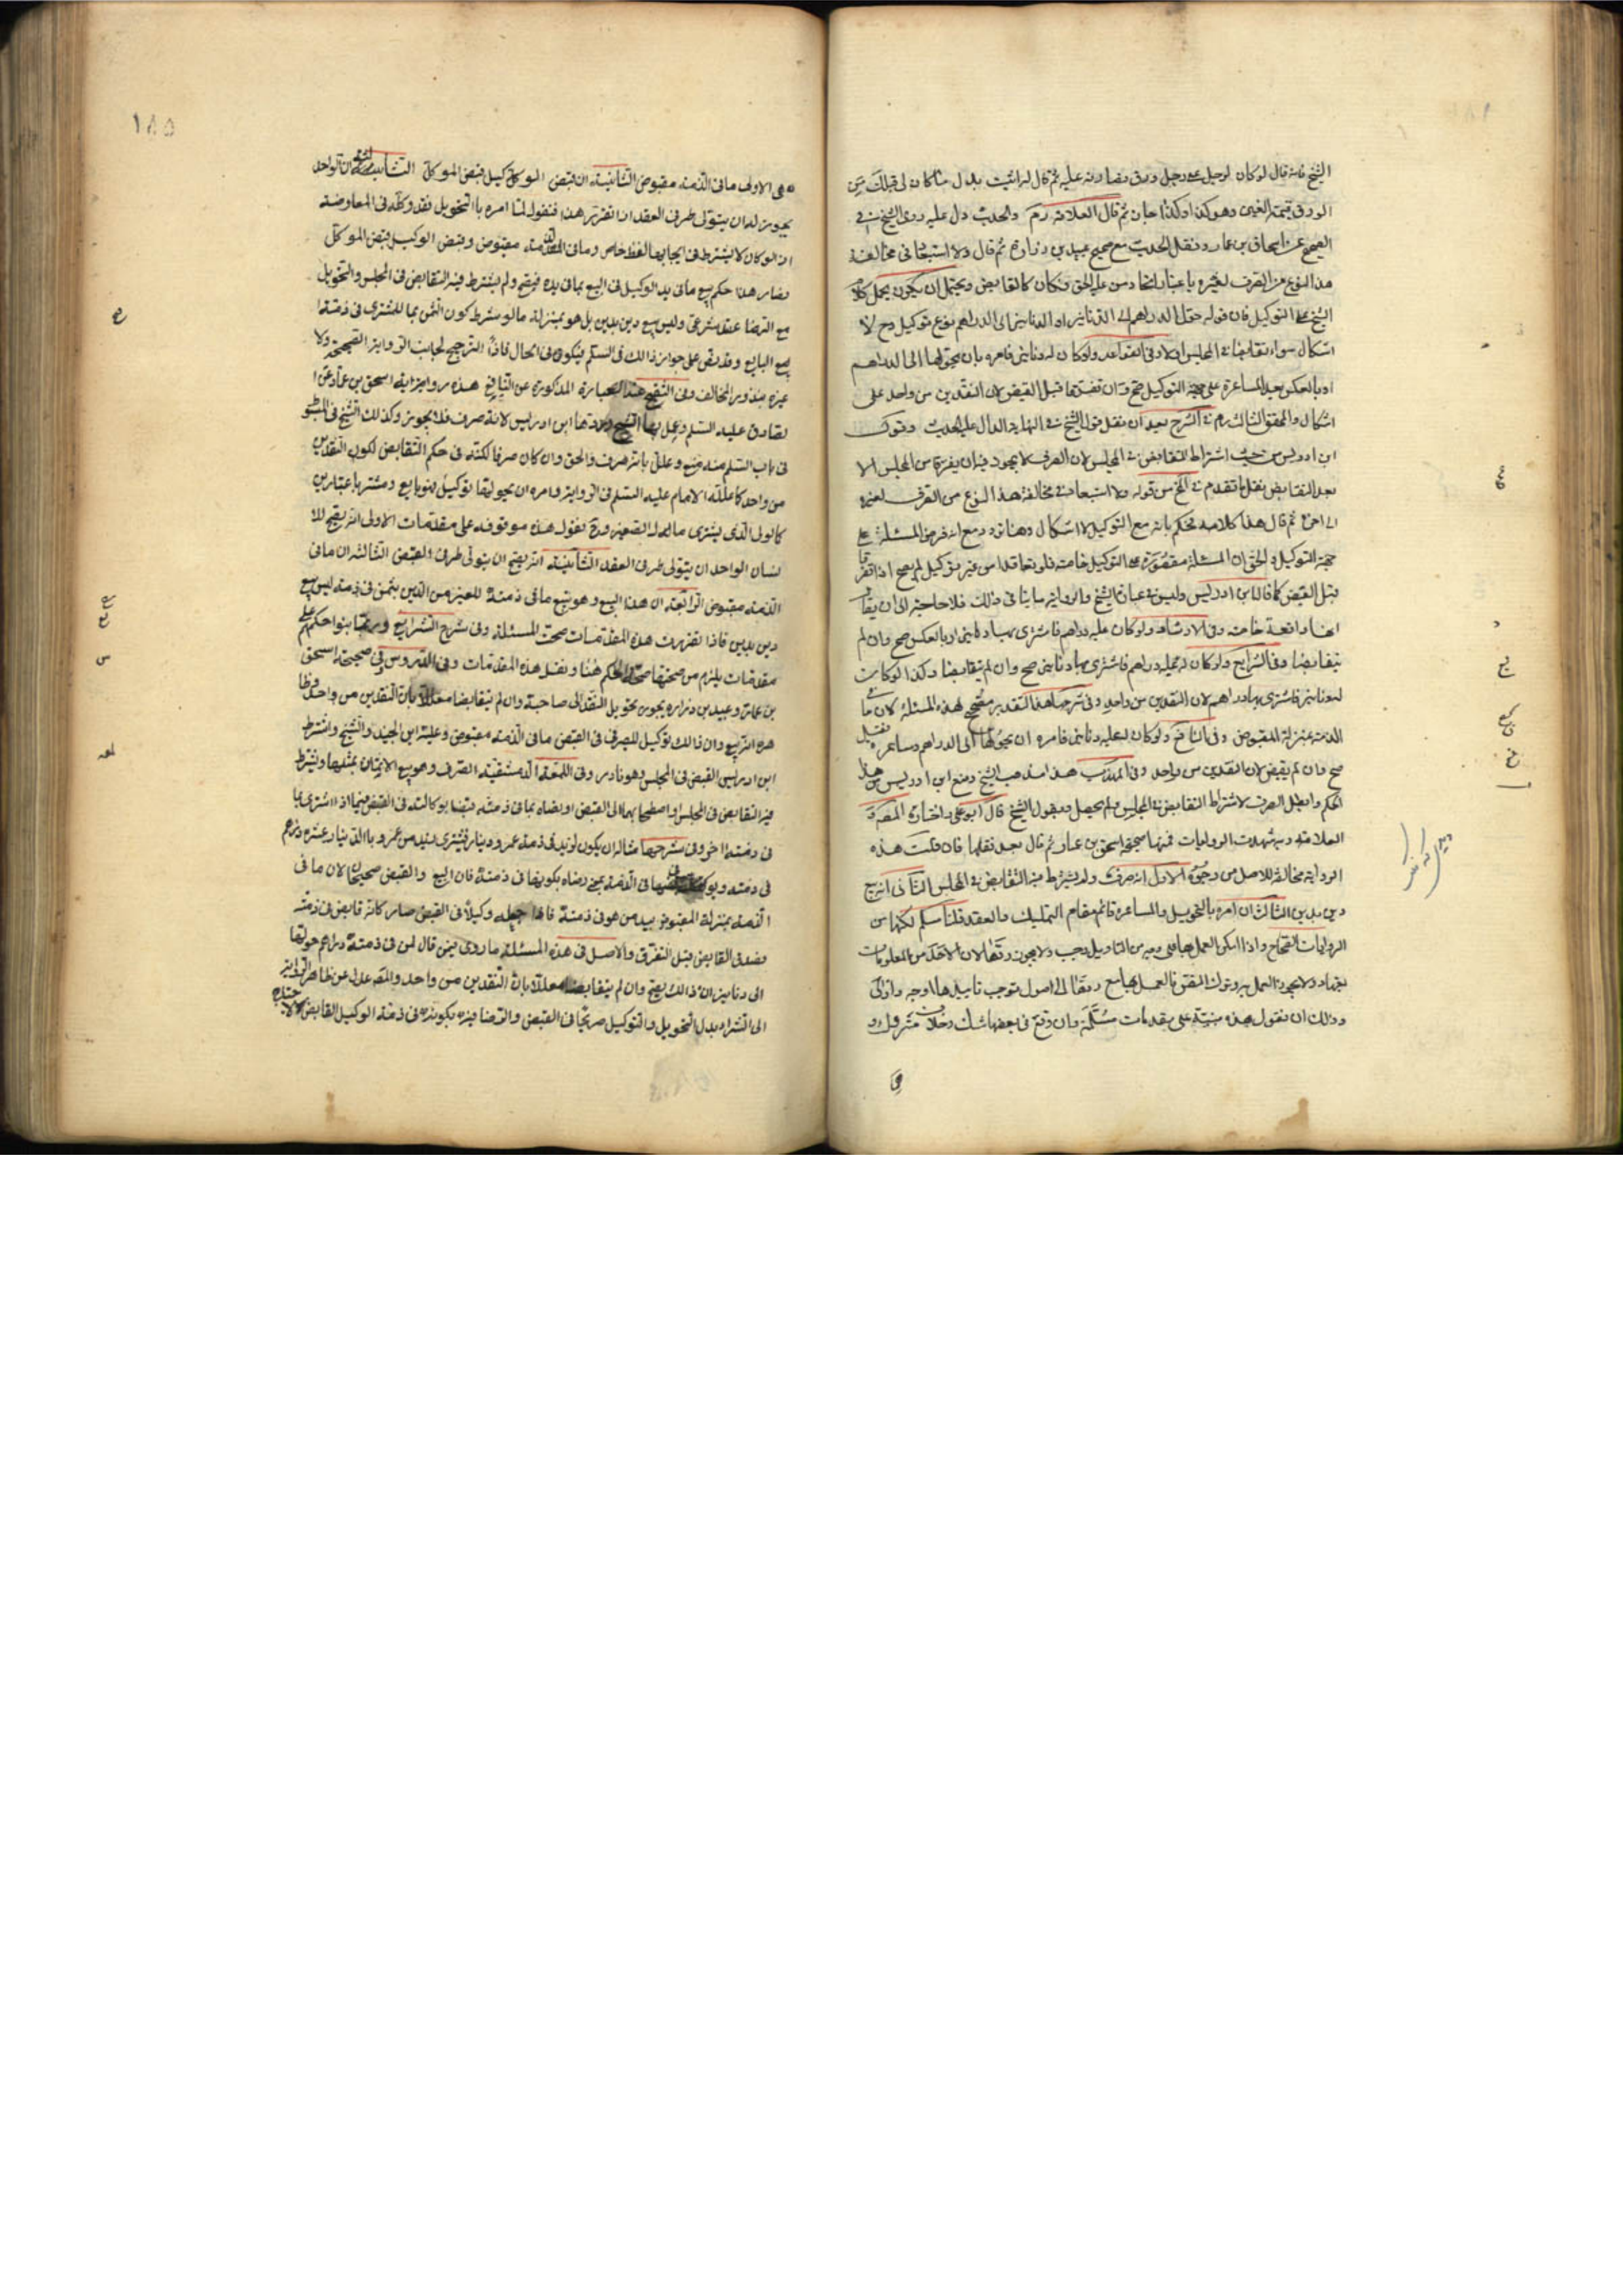 الشيخ فانه قال لو كان لرجل على رجل ورق فصارفه عليه ثم قال له اثبت بدل ما كان لى قبلك من
الورق قيمته العين وهو كذا وكذا جاز ثم قال العلامة ره والحديث دل عليه روى الشيخ فى
الصحيح عن اسحاق بن عمار ونقل الحديث مع صحيح عبيد بن زرارة ثم قال ولا استبعاد فى مخالفة
هذا النوع من الصرف لغيره باعتبار اتحاد من عليه الحق فكان كالتقابض ويحتمل ان يكون يحمل كلام
الشيخ على التوكيل فان قوله حوّل الدراهم الى الدنانير او الدنانير الى الدراهم نوع توكيل وح لا
اشكال سواء تقابضا فى المجلس اولا وفى القواعد ولو كان له دنانير فامره بان يحولها الى الدراهم
او بالعكس بعد المساعرة على جهة التوكيل صح وان تفرقا قبل القبض لان النقدين من واحد على
اشكال والمحقق الثالث ره فى الشرح بعد ان نقل قول الشيخ فى النهاية الدال عليه الحديث وقول
ابن ادريس من حيث اشتراط التقابض فى المجلس لان الصرف لا يجوز فيه ان يفترقا من المجلس الا
بعد التقابض نقل ما تقدم فى لخ من قوله ولا استبعاد فى مخالفة هذا النوع من الصرف لغيره
الى اخره ثم قال هذا كلامه فحكم بانه مع التوكيل لا اشكال وهنا تردد مع انه فرض المسئلة على
جهة التوكيل والحق ان المسئلة مقصورة على التوكيل خاصة فلو تعاقدا من غير توكيل لم يصح اذا تفرقا
قبل القبض كما قال ابن ادريس وليس فى عبارة الشيخ والرواية ما ينافى ذلك فلا حاجة الى ان يقال
انها واقعة خاصة وفى الارشاد ولو كان عليه دراهم فاشترى بها دنانير او بالعكس صح وان لم
يتقابضا وفى الشرايع ولو كان له عليه دراهم فاشترى بها دنانير صح وان لم يتقابضا وكذا لو كانت
له دنانير فاشترى بها دراهم لان النقدين من واحد وفى شرحها هذا التقدير مصحح لهذه المسئلة لان ما فى
الذمة بمنزلة المقبوض وفى النافع ولو كان له عليه دنانير فامره ان يحولها الى الدراهم وساعره فقبل
صح وان لم يقبض لان النقدين من واحد وفى المهذب هذا مذهب الشيخ ومنع ابن ادريس من هذا
الحكم وابطل الصرف لاشتراط التقابض فى المجلس ولم يحصل وبقول الشيخ قال ابو على واختاره المصـ و
العلامة وبه شهدت الروايات فمنها صحيحة اسحق بن عمار ثم قال بعد نقلها فان قلت هذه
الرواية مخالفة للاصل من وجوه الاول انه صرف ولم يشترط فيه التقابض فى المجلس الثانى انه بيع
دين بدين الثالث ان امره بالتحويل والمساعرة قائم مقام التمليك والعقد قلنا مسلم لكنها من
الروايات الصحاح واذا امكن العمل بها مع وجه من التاويل وجب ولا يجوز ردها لان
وذلك ان نقول هذه مبنية على مقدمات مسلمة وان وقع فى بعضها شك وخلاف متروك و
١٨٥
هى الاولى ما فى الذمة مقبوض الثانية ان قبض الوكيل قبض الموكل الثالثة ان الواحد
يجوز له ان يتولى طرفى العقد اذا تقرر هذا فنقول لما امره بالتحويل فقد وكله فى المعاوضة
اذ الوكالة لا يشترط فى ايجابها لفظ خاص وما فى الذمة مقبوض وقبض الوكيل قبض الموكل
فصار هذا حكم بيع ما فى يد الوكيل فى البيع بما فى يده فيصح ولم يشترط فيه التقابض فى المجلس والتحويل
مع الرضا عقد شرعى وليس بيع دين بدين بل هو بمنزلة ما لو شرط كون الثمن بما للمشترى فى ذمة
البايع وقد نص على جواز ذالك فى السلم فيكون فى الحال فاذا الترجيح لجانب الرواية الصحيحة ولا
عبرة بندور المخالف وفى التنقيح عند العبارة المذكورة عن النافع هذه رواية اسحق بن عمار عن ا
لصادق عليه السلم وعمل بها الشيخ وردها ابن ادريس لانه صرف فلا يجوز وكذلك الشيخ فى المبسوط
فى باب السلم منه منع وعلل بانه صرف والحق وان كان صرفا لكنه فى حكم التقابض لكون النقدين
من واحد كما علله الامام عليه السلم فى الرواية وامره ان يحولها توكيل فهو بايع ومشتر باعتبارين
كالولى الذى يشترى مال ولده الصغير ورة نقول هذه موقوفة على مقدمات الاولى انه يصح للا
نسان الواحد ان يتولى طرفى العقد الثانية انه يصح ان يتولى طرفى القبض الثالثة ان ما فى
الذمة مقبوض الرابعة ان هذا البيع وهو بيع ما فى ذمة للغير من الدين بثمن فى ذمته ليس بيع
دين بدين فاذا تقررت هذه المقدمات صحت المسئلة وفى شرح الشرايع وربما بنوا حكمها على
مقدمات يلزم من صحتها صحة الحكم هنا ونقل هذه المقدمات وفى الدروس وفى صحيحة اسحق
بن عمار وعبيد بن زراره يجوز تحويل النقد الى صاحبه وان لم يتقابضا معللا بان النقدين من واحد وظا
هره انه بيع وان ذالك توكيل للصرف فى القبض ما فى الذمة مقبوض وعليه ابن الجنيد والشيخ واشترط
ابن ادريس القبض فى المجلس وهو نادر وفى اللمعة الدمشقية الصرف وهو بيع الاثمان بمثلها ويشترط
فيه التقابض فى المجلس او اصطحابهما الى القبض او رضاه بما فى ذمته قبضا بوكالته فى القبض فيما اذا اشترى بما
فى ذمته اخر وفى شرحها مثاله ان يكون لزيد فى ذمة عمرو دينار فيشترى زيد من عمرو بالدينار عشرة دراهم
فى ذمته ويوكله فى قبضها فى الذمة بمعنى رضاه بكونها فى ذمته فان البيع والقبض صحيحان لان ما فى
الذمة بمنزلة المقبوض بيد من هو فى ذمته فاذا جعله وكيلا فى القبض صار كانه قابض فى ذمته
فصدق التقابض قبل التفرق والاصل فى هذه المسئلة ما روى فيمن قال لمن فى ذمته دراهم حولها
الى دنانير ان ذالك يصح وان لم يتقابضا معللا بان النقدين من واحد والمصـ عدل عن ظاهر الرواية
الى الشراء بدل التحويل والتوكيل صريحا فى القبض والرضا فيه بكونه فى ذمة الوكيل القابض